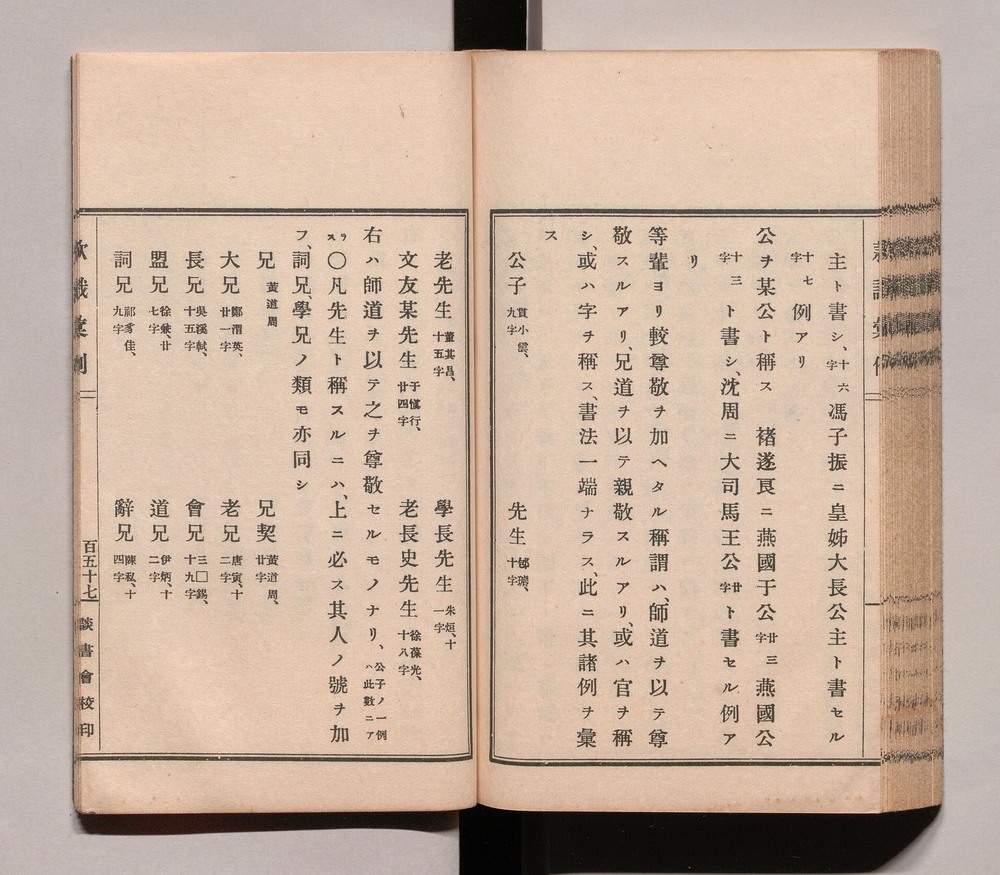 主ト書シ、十六字馮子振ニ皇姊大長公主ト書セル
十七字例アリ
公ヲ某公ト稱ス　褚遂良ニ燕國于公廿三字燕國公
十三字ト書シ、沈周ニ大司馬王公廿字ト書セル例ア
リ
等輩ヨリ較尊敬ヲ加ヘタル稱謂ハ、師道ヲ以テ尊
敬スルアリ、兄道ヲ以テ親敬スルアリ、或ハ官ヲ稱
シ、或ハ字ヲ稱ス、書法一端ナラス、此ニ其諸例ヲ彙
ス
公子貫小雲、九字　先生郇璹、十字
老先生董其昌、十五字　學長先生朱烜、十一字
文友某先生于愼行、廿四字　老長史先生徐葆光、十八字
右ハ師道ヲ以テ之ヲ尊敬セルモノナリ、公子ノ一例ハ此數ニア
ラス〇凡先生ト稱スルニハ、上ニ必ス其人ノ號ヲ加
フ、詞兄、學兄ノ類モ亦同シ
兄黃道周　兄契黃道周、廿字
大兄鄭渭英、廿一字　老兄唐寅、十二字
長兄吳溪軾、十五字　會兄三□錫、十九字
盟兄廿七字　道兄伊炳、十二字
詞兄祁豸佳、九字　辭兄陳私、十四字
百五十七
談書會校印